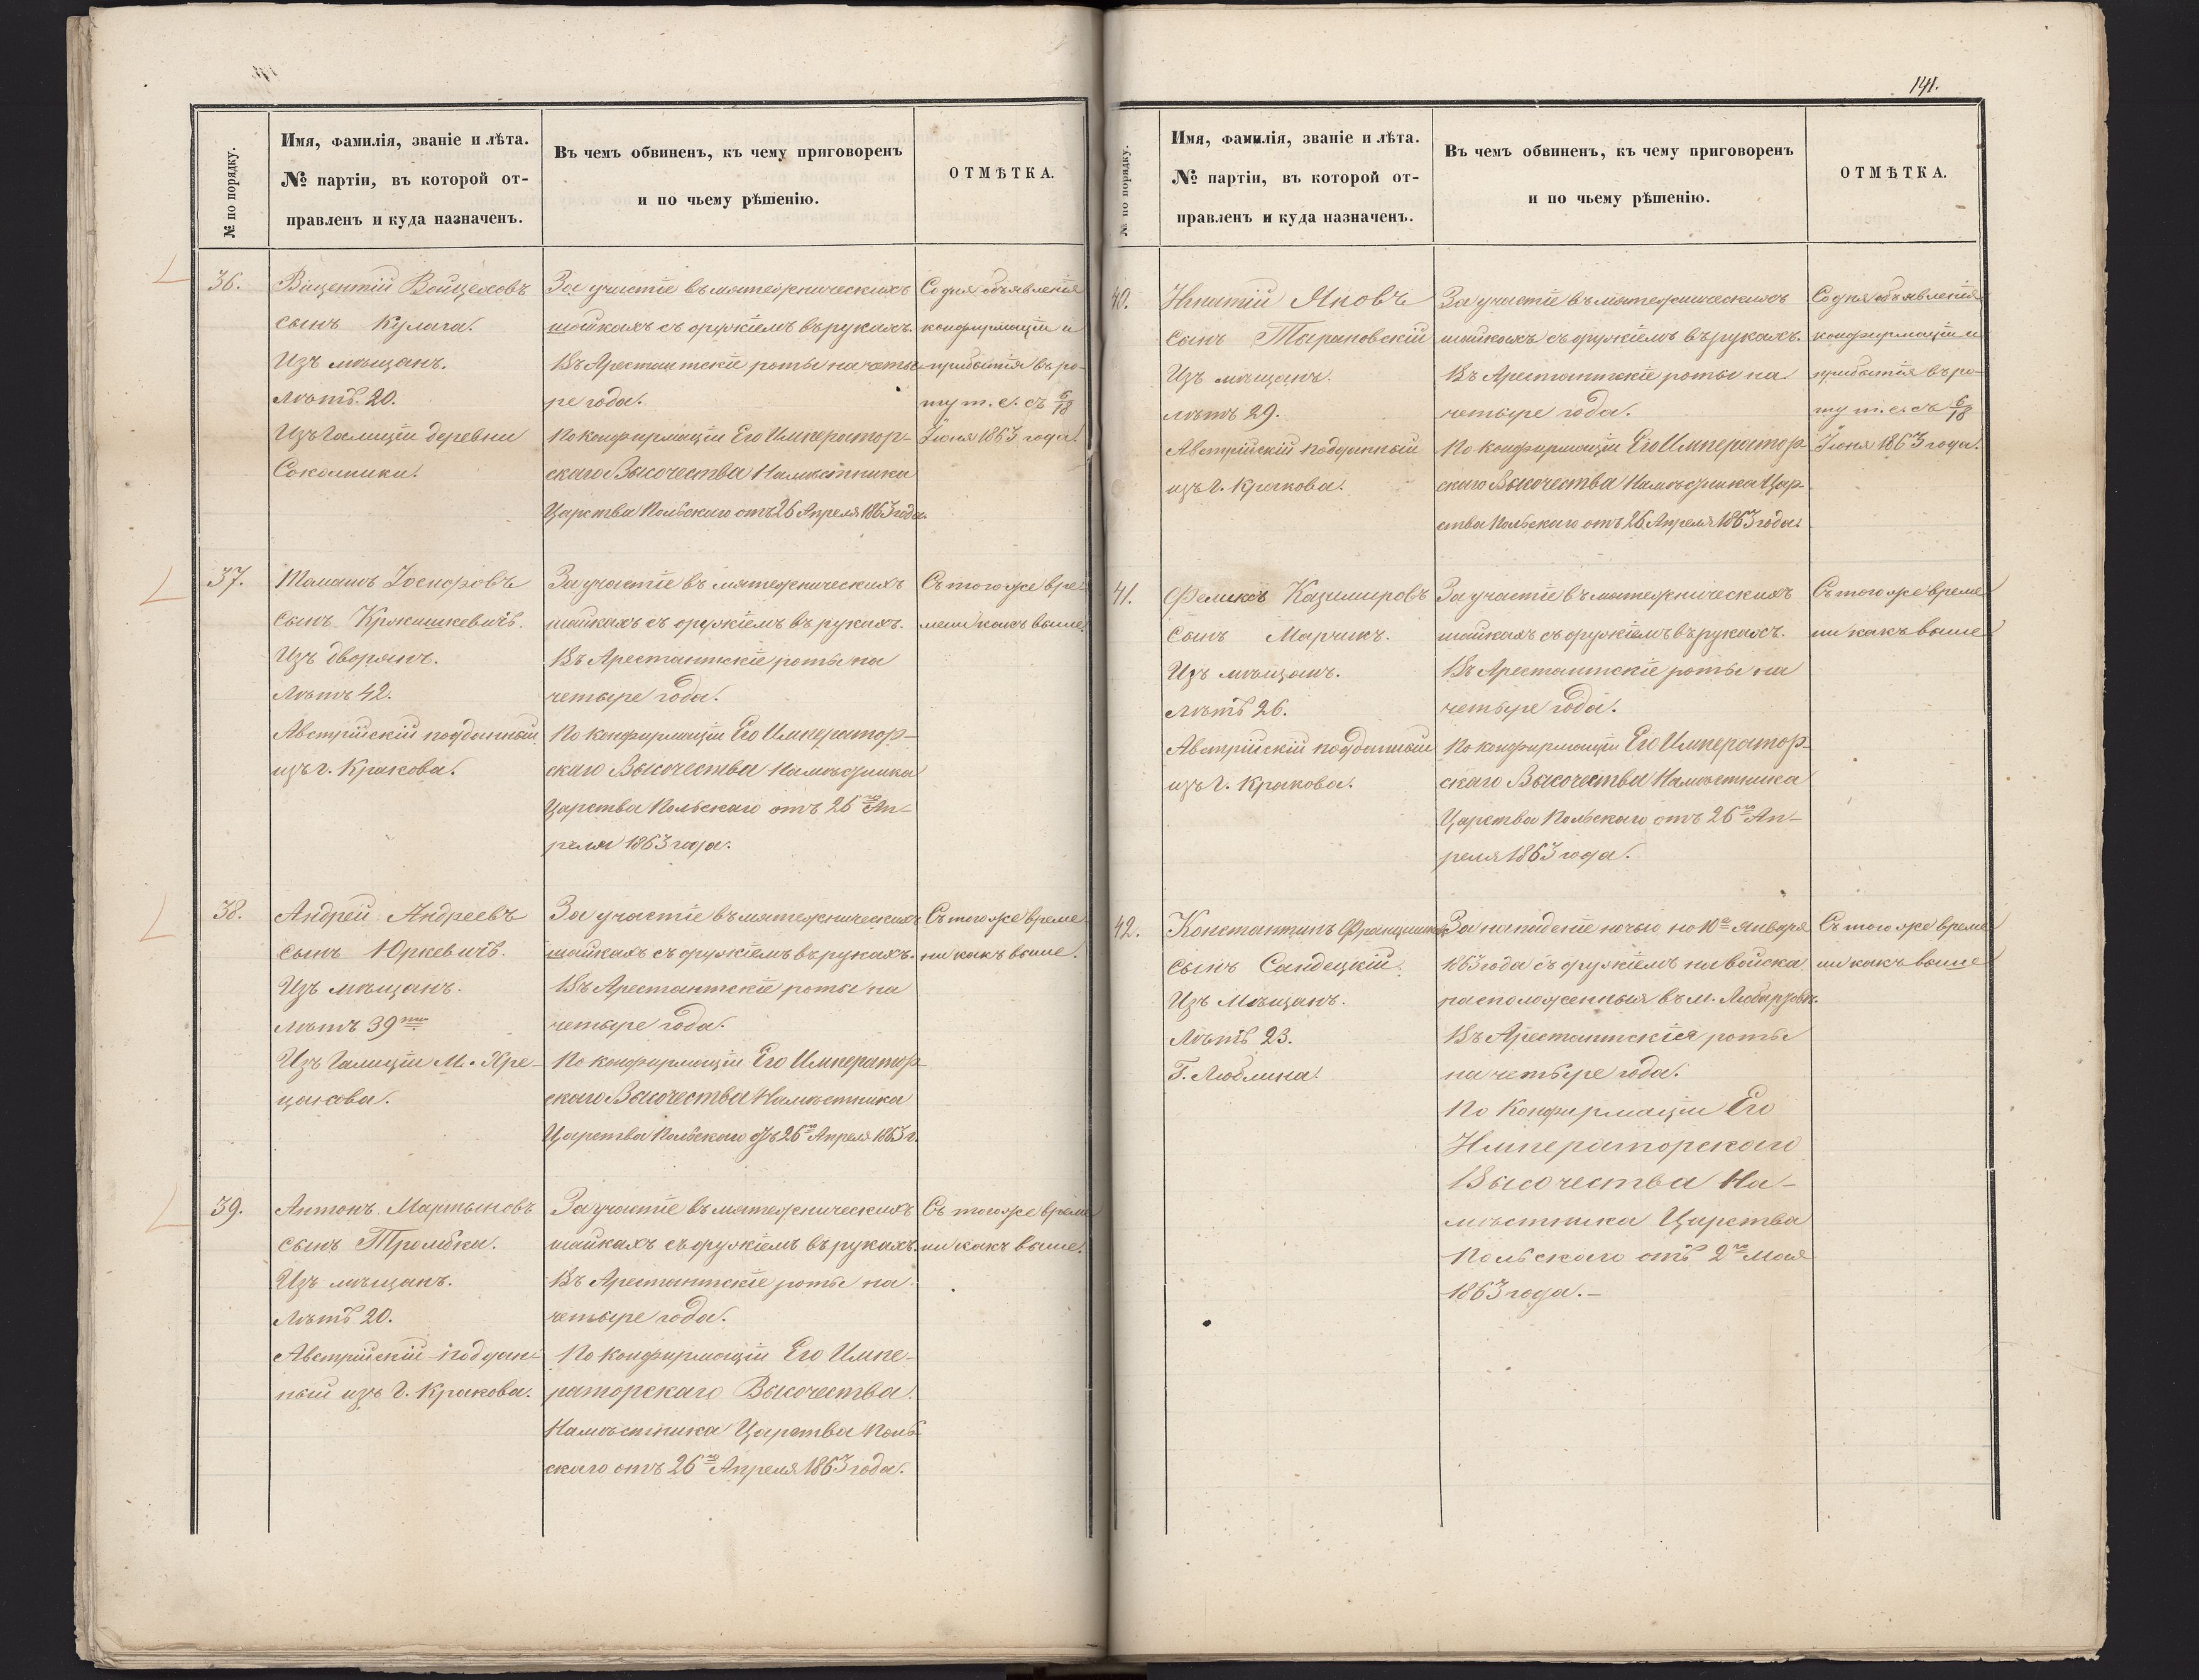 № по порядку.
Имя, фамилія, званіе и лѣта.
№ партіи, въ которой от-
правленъ и куда назначенъ.
Въ чемъ обвиненъ, къ чему приговоренъ
и по чьему рѣшенію.
ОТМѢТКА.
36.
Вицентій Войцеховъ
сынъ Кулага.
Изъ мѣщанъ.
Лѣтъ. 20.
Изъ Галиціи деревни
Сокольники.
За участіе въ мятежническихъ
шайкахъ съ оружіемъ въ рукахъ.
Въ Арестантскіе роты на четы-
ре года.
По конфирмаціи Его Император-
скаго Высочества Намѣстника
Царства Польскаго отъ 26 Апреля 1863 года.
Со дня объявленія
конфирмаціи и
прибытія въ ро-
ту т. е. съ 6/18
Іюня 1863 года.
37.
Томашъ Іосифовъ
сынъ
Изъ дворянъ.
Лѣтъ 42.
Австрійскій подданный
изъ г. Кракова.
За участіе въ мятежническихъ
шайкахъ съ оружіемъ въ рукахъ.
Въ Арестантскіе роты на
четыре года.
По конфирмаціи Его Император-
скаго Высочества Намѣстника
Царства Польскаго отъ 26го Ап-
реля 1863 года.
Съ того же вре-
мени какъ выше.
38.
Андрей Андреевъ
сынъ Юркевичъ.
Изъ мѣщанъ.
Лѣтъ 39ти
Изъ Галиціи М.
За участіе въ мятежническихъ
шайкахъ съ оружіемъ въ рукахъ.
Въ Арестантскіе роты на
четыре года.
По конфирмаціи Его Император-
скаго Высочества Намѣстника
Царства Польскаго отъ 26го Апреля 1863 г.
Съ того же време-
ни какъ выше.
39.
Антонъ Мартыновъ
сынъ Тромбка.
Изъ мѣщанъ.
Лѣтъ 20.
Австрійскій поддан-
ный изъ г. Кракова.
За участіе въ мятежническихъ
шайкахъ съ оружіемъ въ рукахъ.
Въ Арестантскіе роты на
четыре года.
По конфирмаціи Его Импе-
раторскаго Высочества
Намѣстника Царства Поль-
скаго отъ 26го Апреля 1863 года.
Съ того же време-
ни какъ выше.
141.
№ по порядку.
Имя, фамилія, званіе и лѣта.
№ партіи, въ которой от-
правленъ и куда назначенъ.
Въ чемъ обвиненъ, къ чему приговоренъ
и по чьему рѣшенію.
ОТМѢТКА.
40.
Игнатій Яновъ
сынъ Тырановскій
Изъ мѣщанъ.
Лѣтъ 29.
Австрійскій подданный
изъ г. Кракова.
За участіе въ мятежническихъ
шайкахъ съ оружіемъ въ рукахъ.
Въ Арестантскіе роты на
четыре года.
По конфирмаціи Его Император-
скаго Высочества Намѣстника Цар-
ства Польскаго отъ 26 Апреля 1863 года.
Со дня объявленія
конфирмаціи и
прибытія въ ро-
ту т. е. съ 6/18
Іюня 1863 года.
41.
Феликсъ Казимировъ
сынъ Марчикъ.
Изъ мѣщанъ.
Лѣтъ 26.
Австрійскій подданный
изъ г. Кракова.
За участіе въ мятежническихъ
шайкахъ съ оружіемъ въ рукахъ.
Въ Арестантскіе роты на
четыре года.
По конфирмаціи Его Император-
скаго Высочества Намѣстника
Царства Польскаго отъ 26го Ап-
реля 1863 года.
Съ того же време-
ни какъ выше
42.
Константинъ Францишковъ
сынъ Сандецкій.
Изъ Мѣщанъ.
Лѣтъ 23.
Г. Люблина.
За нападеніе ночью на 10е Января
1863 года съ оружіемъ на войска
расположенныя въ м.
Въ Арестантскія роты
на четыре года.
По Конфирмаціи Его
Императорскаго
Высочества На-
мѣстника Царства
Польскаго отъ 2го Мая
1863 года.–
Съ того же време-
ни какъ выше